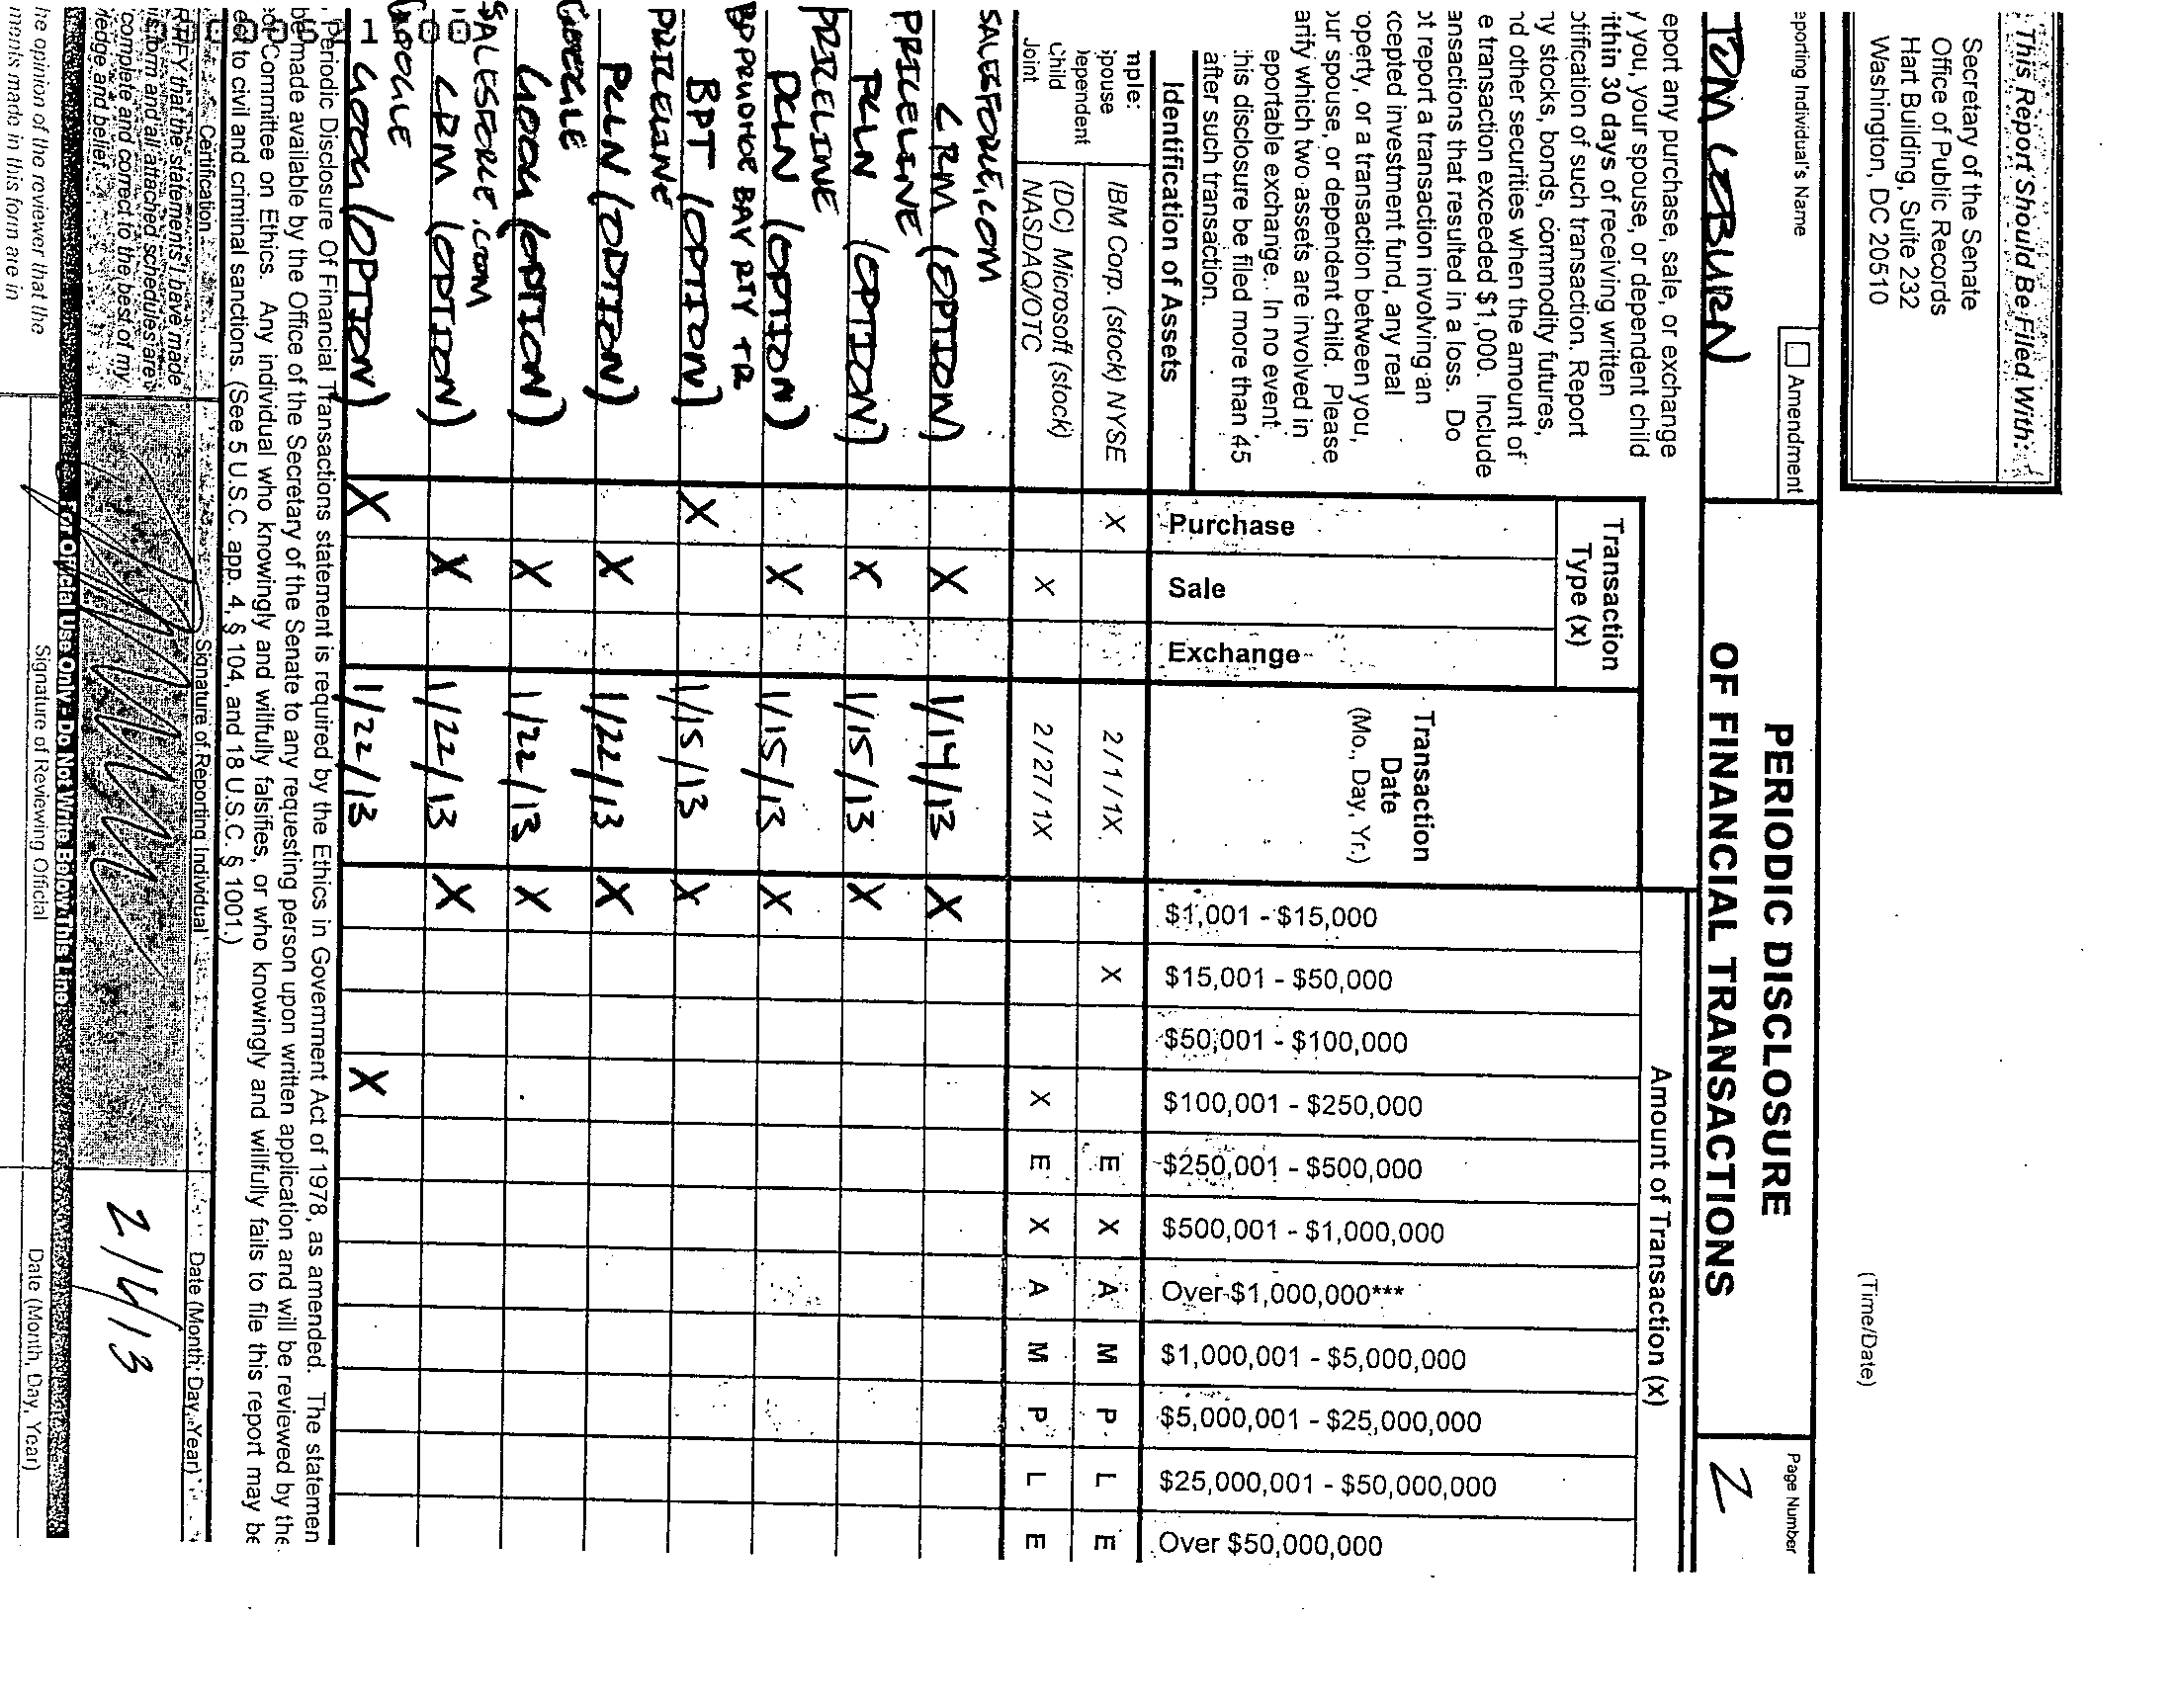 This Report Should Be Filed With:
Secretary of the Senate
Office of Public Records
Hart Building, Suite 232
Washington, DC 20510
(Time/Date)
eporting Individual's Name
Amendment
TOM COBURN
PERIODIC DISCLOSURE
OF FINANCIAL TRANSACTIONS
Page Number
2
eport any purchase, sale, or exchange
y you, your spouse, or dependent child
ithin 30 days of receiving written
otification of such transaction. Report
ny stocks, bonds, commodity futures,
nd other securities when the amount of
e transaction exceeded $1,000. Include
ansactions that resulted in a loss. Do
ot report a transaction involving an
xcepted investment fund, any real
operty, or a transaction between you,
our spouse, or dependent child. Please
arify which two assets are involved in
eportable exchange. In no event
his disclosure be filed more than 45
after such transaction.
Identification of Assets
Transaction
Type (x)
Purchase
Sale
Exchange
Transaction
Date
(Mo., Day, Yr.)
Amount of Transaction (x)
$1,001 - $15,000
$15,001 - $50,000
$50,001 - $100,000
$100,001 - $250,000
$250,001 - $500,000
$500,001 - $1,000,000
Over $1,000,000***
$1,000,001 - $5,000,000
$5,000,001 - $25,000,000
$25,000,001 - $50,000,000
Over $50,000,000
mple:
pouse
ependent
Child
Joint
IBM Corp. (stock) NYSE X 2/1/1X X E X A M P L E
(DC) Microsoft (stock)
NASDAQ/OTC X 2/27/1X X E X A M P L E
SALESFORCE.COM
CRM (OPTION) X 1/14/13 X
PRICELINE
PCLN (OPTION) X 1/15/13 X
PRICELINE
PCLN (OPTION) X 1/15/13 X
BP PRUDHOE BAY RTY TR
BPT (OPTION) X 1/15/13 X
PRICELINE
PCLN (OPTION) X 1/22/13 X
GOOGLE
GOOG (OPTION) X 1/22/13 X
SALESFORCE.COM
CRM (OPTION) X 1/22/13 X
GOOGLE
GOOG (OPTION) X 1/22/13 X
Periodic Disclosure Of Financial Transactions statement is required by the Ethics in Government Act of 1978, as amended. The statemen
be made available by the Office of the Secretary of the Senate to any requesting person upon written application and will be reviewed by the
Committee on Ethics. Any individual who knowingly and willfully falsifies, or who knowingly and willfully fails to file this report may be
to civil and criminal sanctions. (See 5 U.S.C. app. 4, § 104, and 18 U.S.C. § 1001.)
Certification
Signature of Reporting Individual
Date (Month, Day, Year)
that the statements I have made
form and all attached schedules are
complete and correct to the best of my
ledge and belief.
2/4/13
For Official Use Only - Do Not Write Below This Line
he opinion of the reviewer that the
ments made in this form are in
Signature of Reviewing Official
Date (Month, Day, Year)